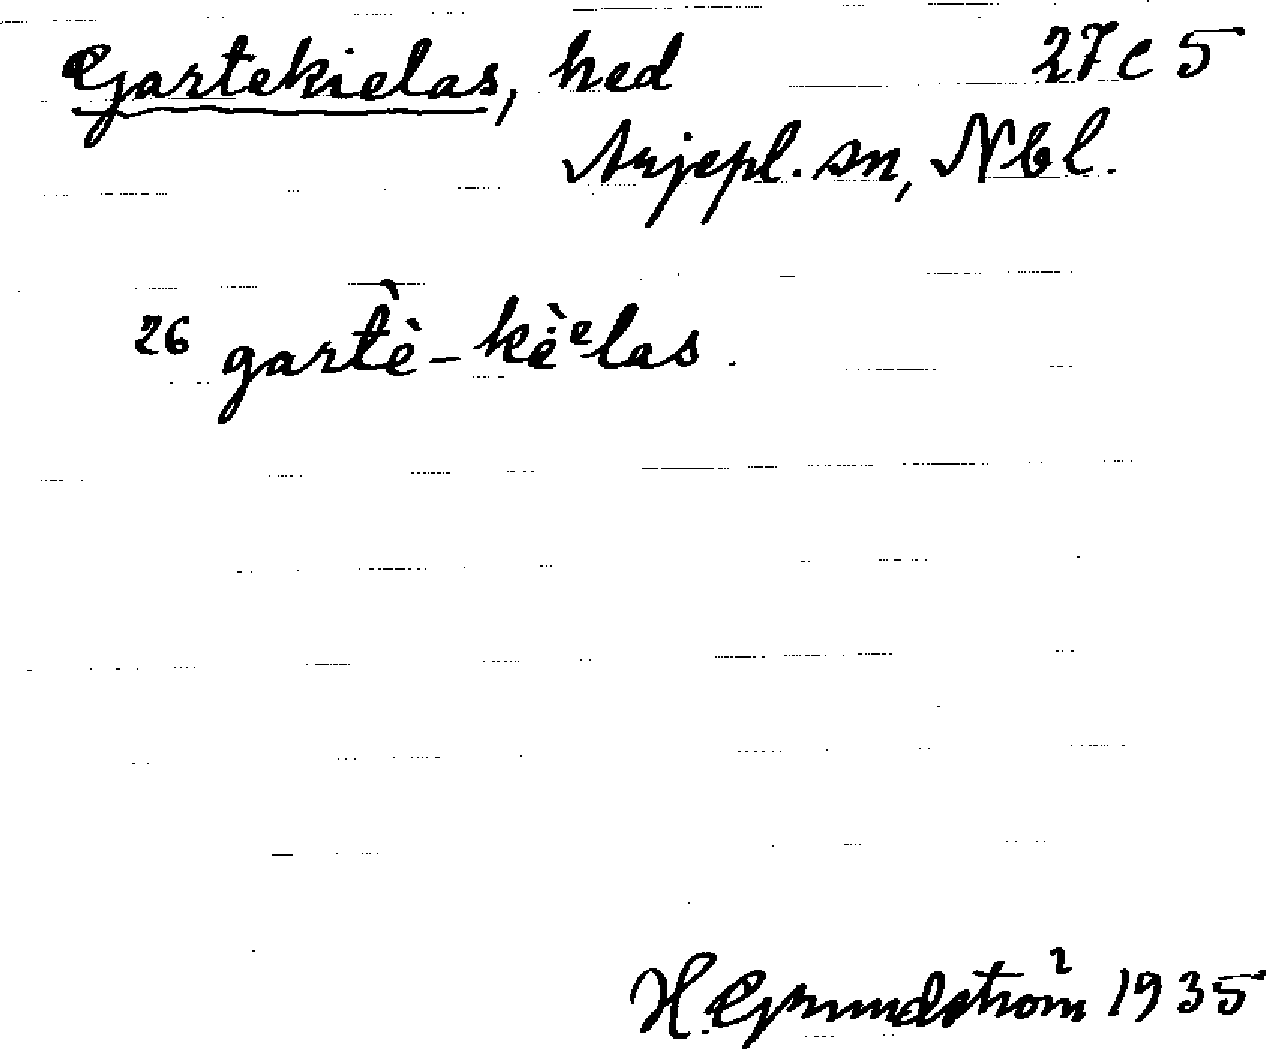 Gartekielas, hed 27 c 5
Arjepl. sn, Nbl.
26 gartè̀-kè̇ᵉlas.
H. Grundström 1935